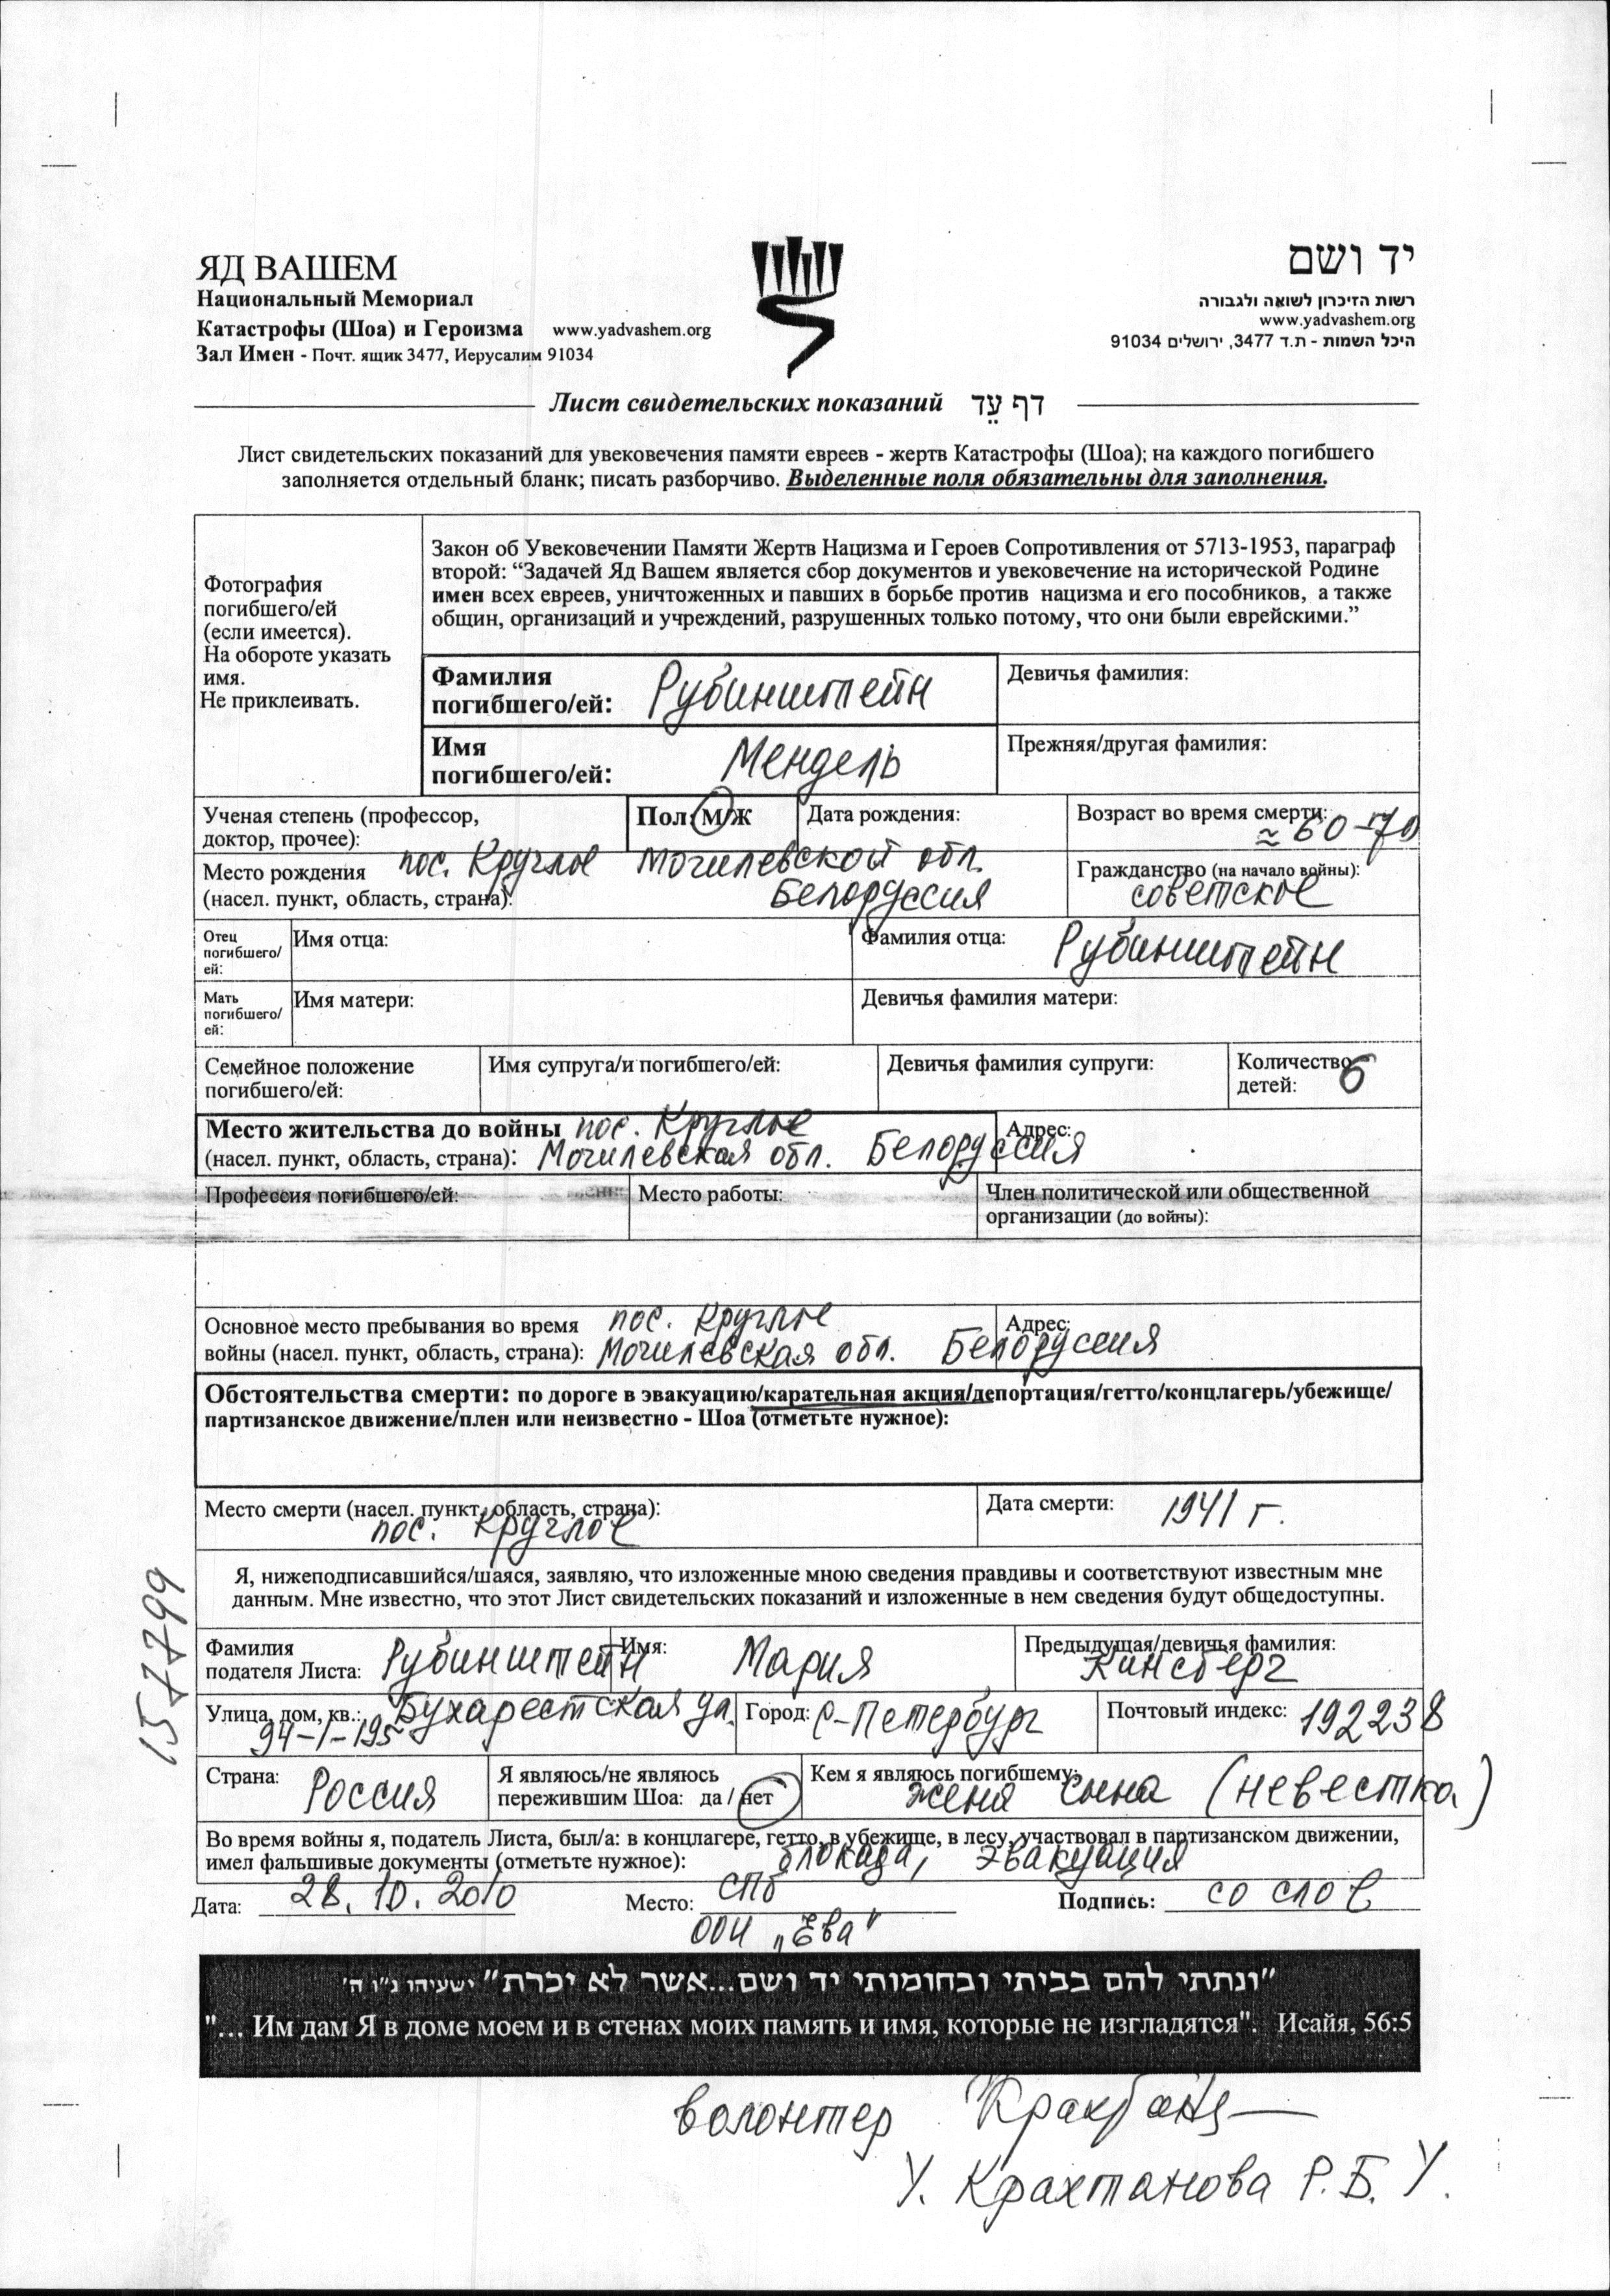 ЯД ВАШЕМ
Национальный Мемориал
Катастрофы (Шоа) и Героизма www.yadvashem.org
Зал Имен - Почт. ящик 3477, Иерусалим 91034
יד ושם
רשות הזיכרון לשואה ולגבורה
www.yadvashem.org
היכל השמות - ת.ד 3477, ירושלים 91034
Лист свидетельских показаний דף עֵד
Лист свидетельских показаний для увековечения памяти евреев - жертв Катастрофы (Шоа); на каждого погибшего
заполняется отдельный бланк; писать разборчиво. Выделенные поля обязательны для заполнения.
Фотография
погибшего/ей
(если имеется).
На обороте указать
имя.
Не приклеивать.
Закон об Увековечении Памяти Жертв Нацизма и Героев Сопротивления от 5713-1953, параграф
второй: “Задачей Яд Вашем является сбор документов и увековечение на исторической Родине
имен всех евреев, уничтоженных и павших в борьбе против нацизма и его пособников, а также
общин, организаций и учреждений, разрушенных только потому, что они были еврейскими.”
Фамилия
погибшего/ей: Рубинштейн
Девичья фамилия:
Имя
погибшего/ей: Мендель
Прежняя/другая фамилия:
Ученая степень (профессор,
доктор, прочее):
Пол: М/Ж
Дата рождения:
Возраст во время смерти:
≈ 60-70
Место рождения пос. Круглое Могилевской обл.
(насел. пункт, область, страна): Белоруссия
Гражданство (на начало войны):
советское
Отец
погибшего/
ей:
Имя отца:
Фамилия отца: Рубинштейн
Мать
погибшего/
ей:
Имя матери:
Девичья фамилия матери:
Семейное положение
погибшего/ей:
Имя супруга/и погибшего/ей:
Девичья фамилия супруги:
Количество
детей: 6
Место жительства до войны пос. Круглое
(насел. пункт, область, страна): Могилевская обл. Белоруссия
Адрес:
Профессия погибшего/ей:
Место работы:
Член политической или общественной
организации (до войны):
Основное место пребывания во время пос. Круглое
войны (насел. пункт, область, страна): Могилевская обл. Белоруссия
Адрес:
Обстоятельства смерти: по дороге в эвакуацию/карательная акция/депортация/гетто/концлагерь/убежище/
партизанское движение/плен или неизвестно - Шоа (отметьте нужное):
Место смерти (насел. пункт, область, страна):
пос. Круглое
Дата смерти: 1941 г.
Я, нижеподписавшийся/шаяся, заявляю, что изложенные мною сведения правдивы и соответствуют известным мне
данным. Мне известно, что этот Лист свидетельских показаний и изложенные в нем сведения будут общедоступны.
157799
Фамилия
подателя Листа: Рубинштейн
Имя: Мария
Предыдущая/девичья фамилия:
Кинсберг
Улица, дом, кв.: Бухарестская ул.
94-1-195
Город: С-Петербург
Почтовый индекс: 192238
Страна: Россия
Я являюсь/не являюсь
пережившим Шоа: да / нет
Кем я являюсь погибшему:
жена сына (невестка)
Во время войны я, податель Листа, был/а: в концлагере, гетто, в убежище, в лесу, участвовал в партизанском движении,
имел фальшивые документы (отметьте нужное): блокада, эвакуация
Дата: 28.10.2010 Место: СПб Подпись: со слов
ООИ „Ева"
"ונתתי להם בביתי ובחומותי יד ושם...אשר לא יכרת" ישעיהו נ"ו ה'
"... Им дам Я в доме моем и в стенах моих память и имя, которые не изгладятся". Исайя, 56:5
волонтер
У. Крахтанова Р.Б. У.